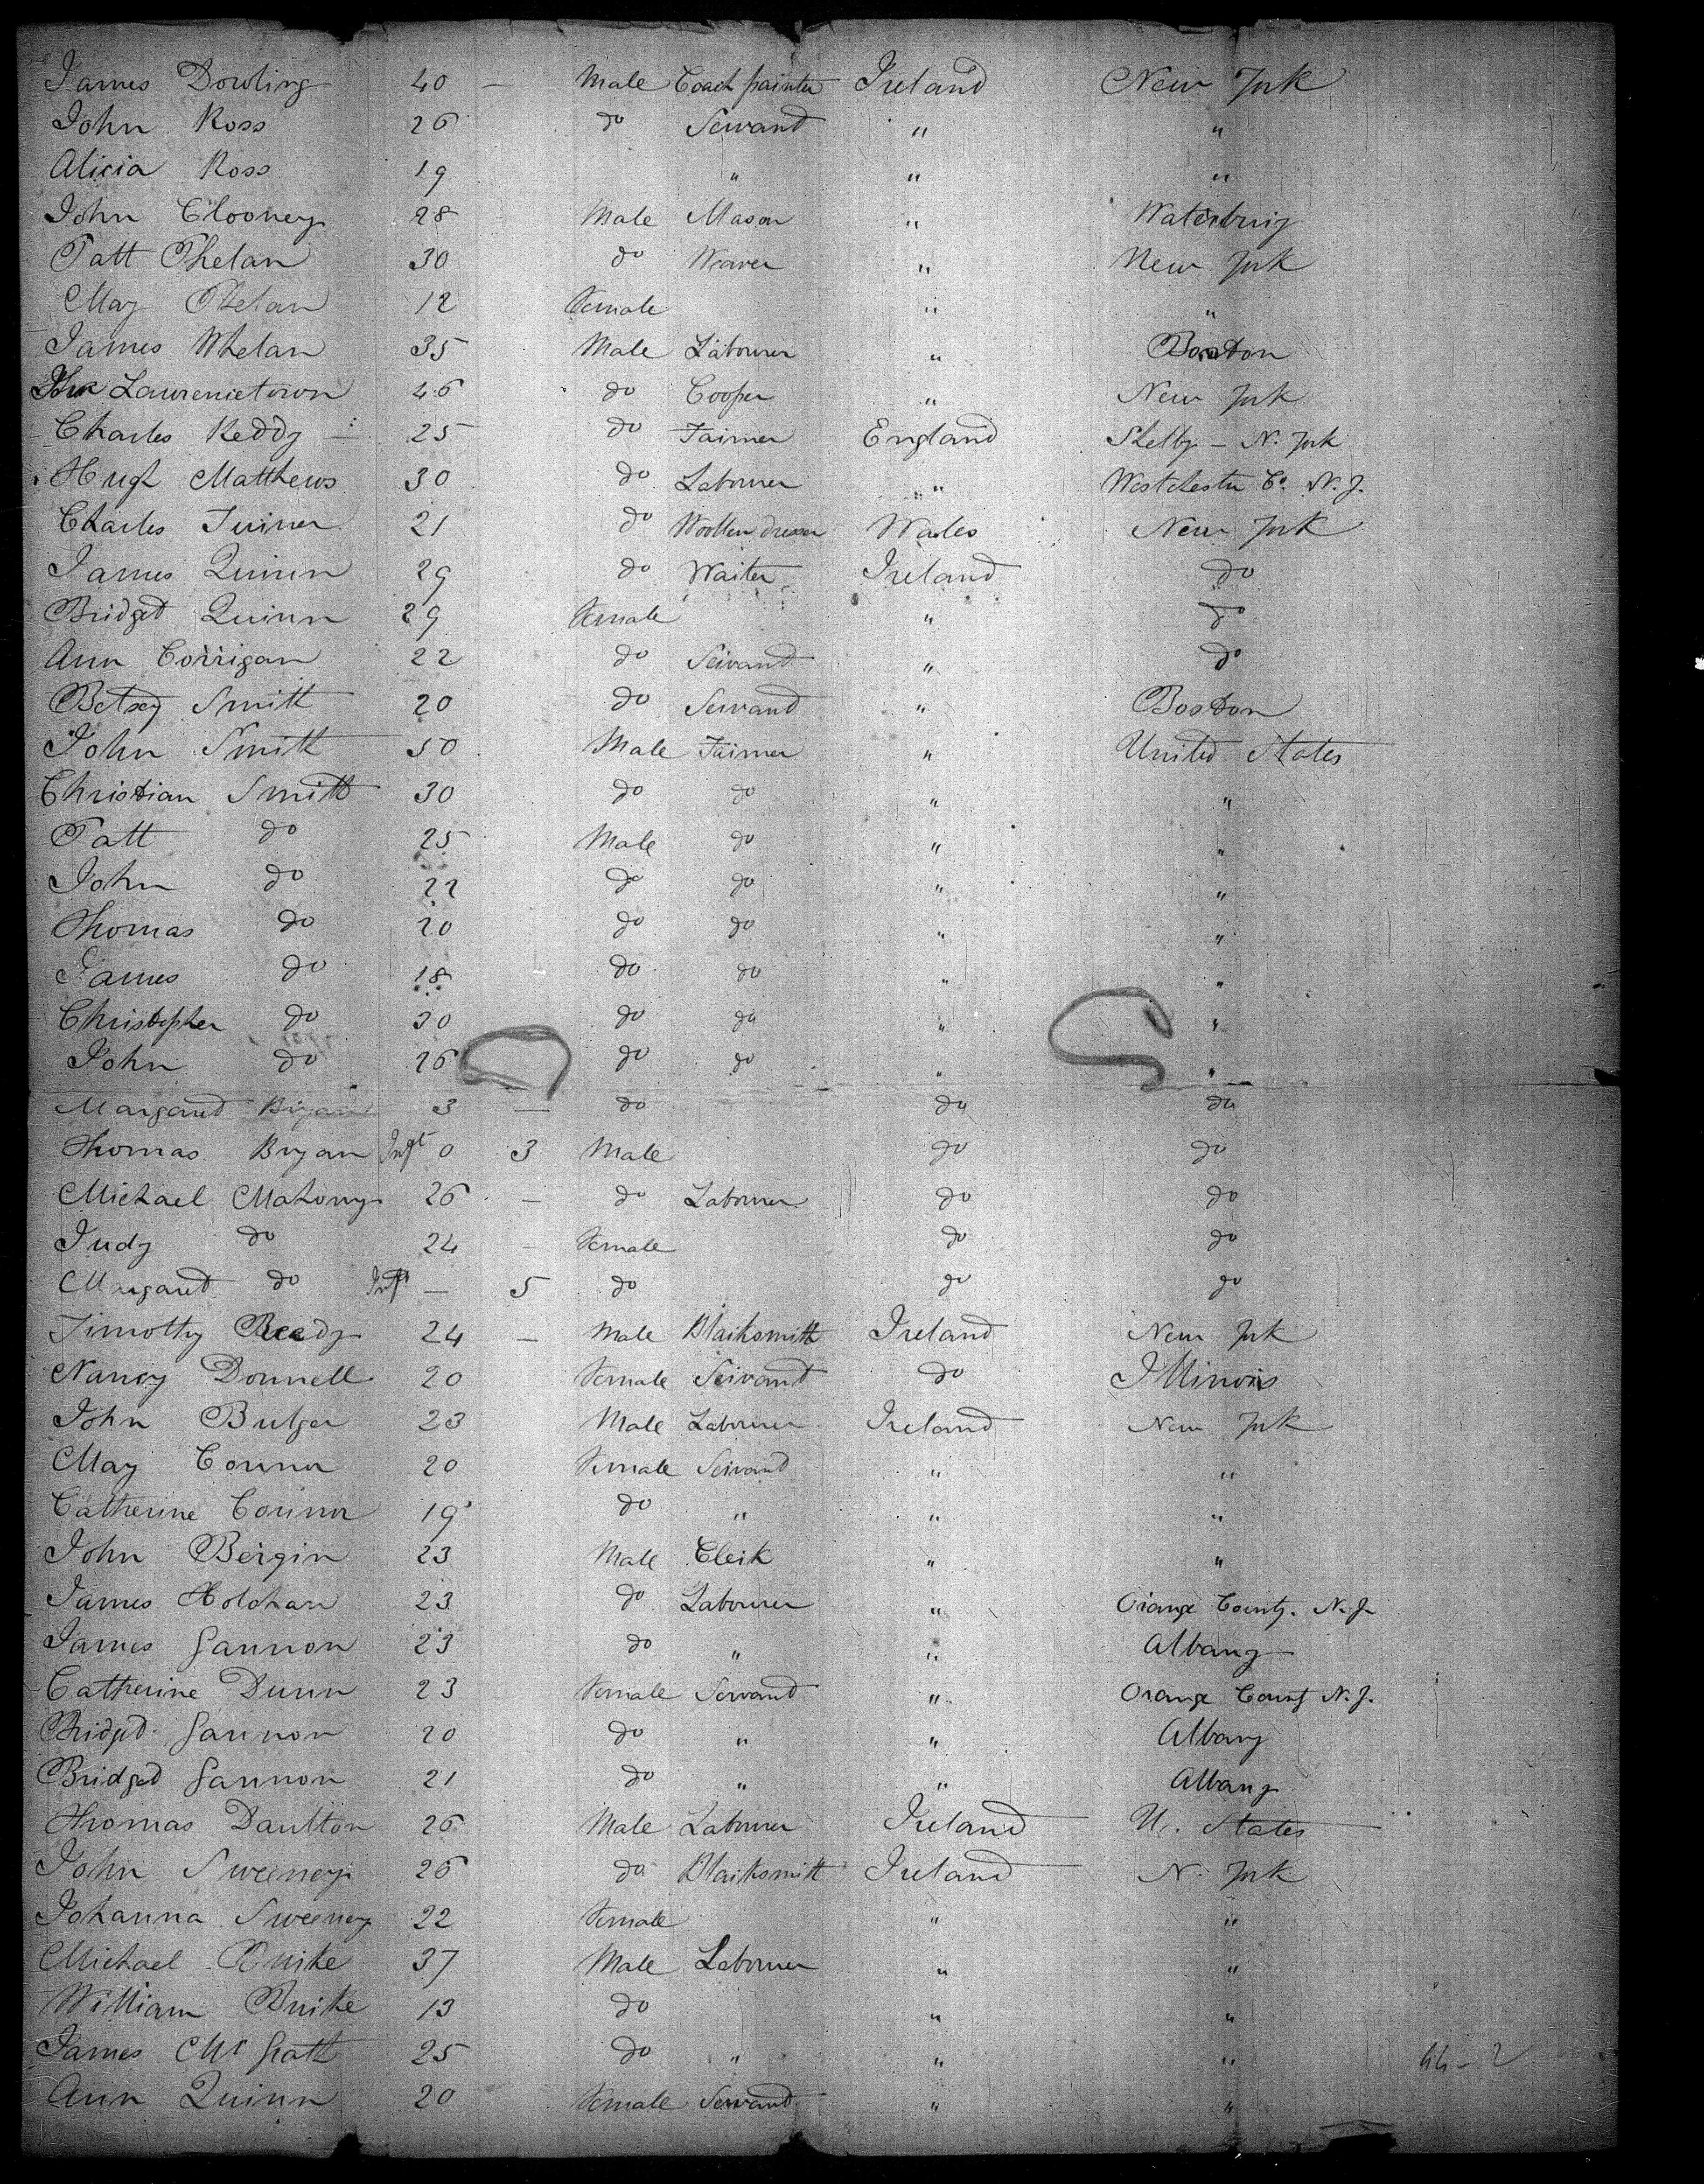 James Dowling 40 — Male Coach painter Ireland New York
John Ross 26 do Servand " "
Alicia Ross 19 " " "
John Clooney 28 Male Mason " Waterburg
Patt Phelan 30 do Weaver " New York
May Phelan 12 Female " "
James Whelan 35 Male Labourer " Boston
Laurenietown 46 do Cooper " New York
Charles Reddy — 25 do Farmer England Shelby - N. York
Hugh Matthews 30 do Labourer " Westchester Co. N. J.
Charles Turner 21 do Woollen dresser Wales New York
James Quinn 29 do Waiter Ireland do
Bridget Quinn 29 Female " do
Ann Corrigan 22 do Servand " do
Betsey Smith 20 do Servand " Boston
John Smith 50 Male Farmer " United States
Christian Smith 30 do do " "
Patt do 25 Male do " "
John do 22 do do " "
Thomas do 20 do do " "
James do 18 do do " "
Christopher do 30 do do " "
John do 26 do do " "
Margaret Bryan 3 — do do do
Thomas Bryan Inft 0 3 Male do do
Michael Mahony 26 — do Labourer do do
Judy do 24 - Female do do
Margaret do Inft — 5 do do do
Timothy Ready 24 — Male Blacksmith Ireland New York
Nancy Donnell 20 Female Servant do Illinois
John Bulger 23 Male Labourer Ireland New York
May Connor 20 Female Servand " "
Catherine Connor 19 do " " "
John Bergin 23 Male Clerk " "
James Holohan 23 do Labourer " Orange County. N. J.
James Gannon 23 do " " Albany
Catherine Dunn 23 Female Servand " Orange County N. J.
Bridget Gannon 20 do " " Albany
Bridget Gannon 21 do " " Albany
Thomas Daulton 26 Male Labourer Ireland U. States
John Sweeney 26 do Blacksmith Ireland N. York
Johanna Sweeney 22 Female " "
Michael Burke 37 Male Labourer " "
William Burke 13 do " "
James McGrath 25 do " " " 44-2
Ann Quinn 20 Female Servand " "